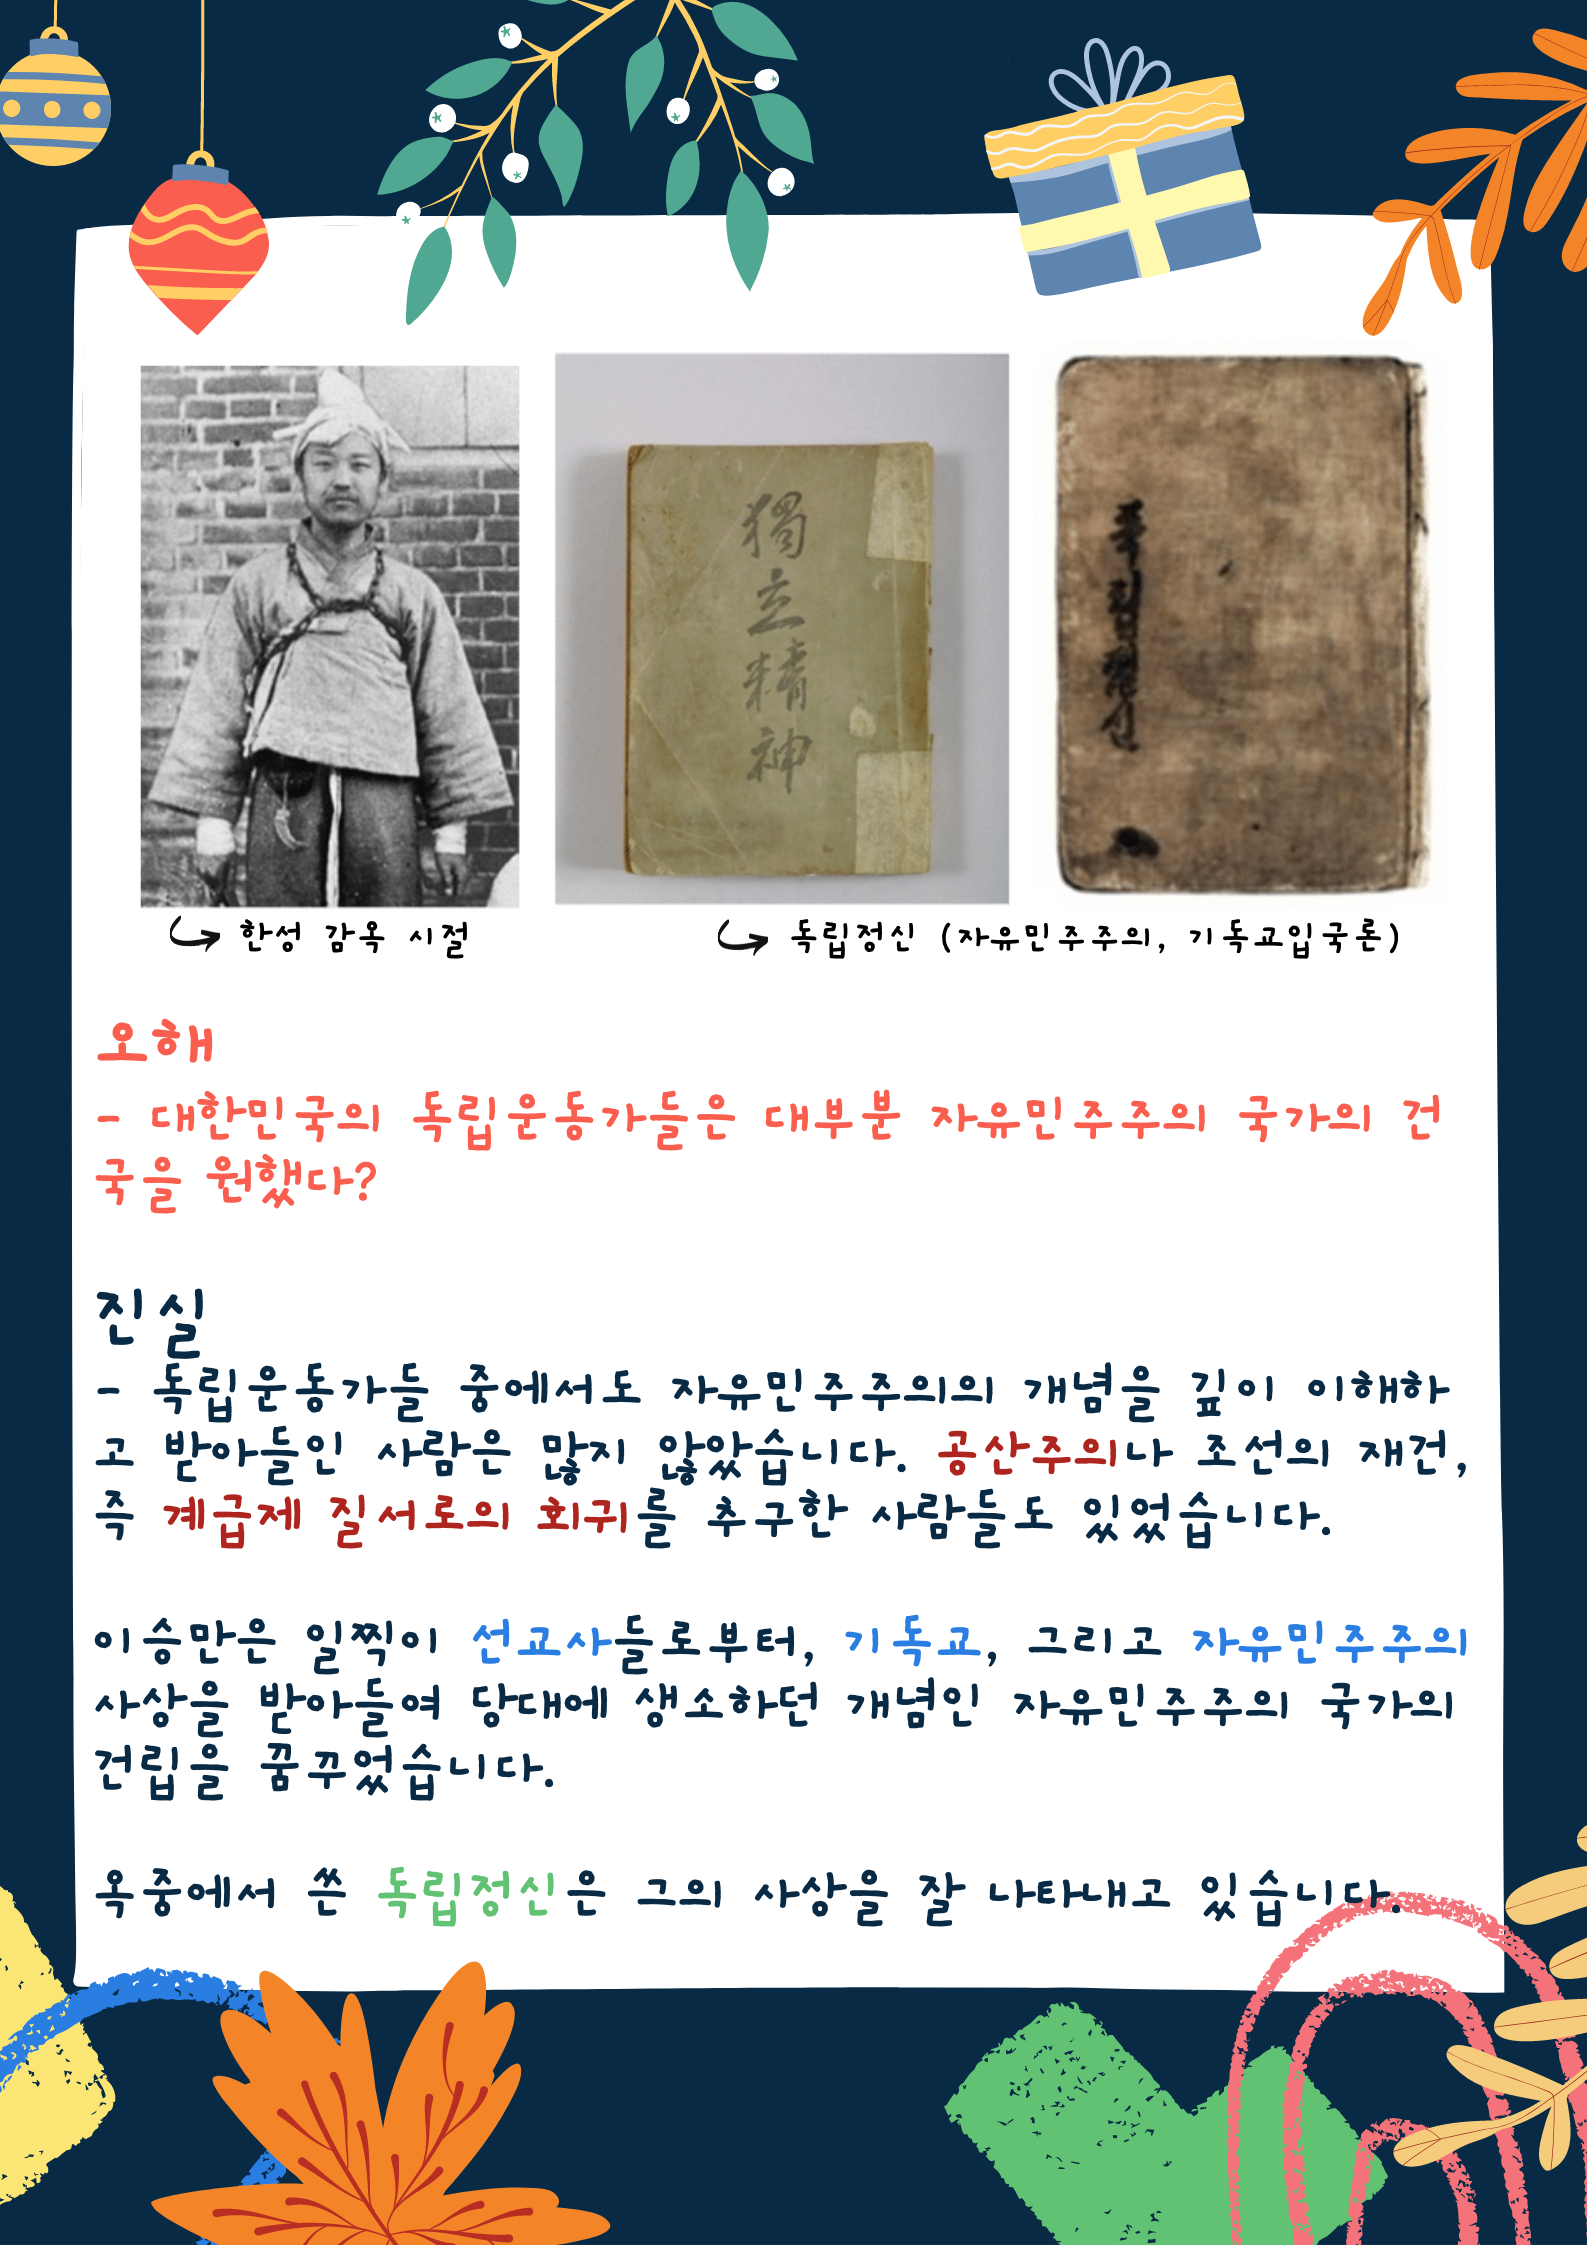 獨立精神
독립정신
한성 감옥 시절
독립정신 (자유민주주의, 기독교입국론)
오해
- 대한민국의 독립운동가들은 대부분 자유민주주의 국가의 건
국을 원했다?
진실
- 독립운동가들 중에서도 자유민주주의의 개념을 깊이 이해하
고 받아들인 사람은 많지 않았습니다. 공산주의나 조선의 재건,
즉 계급제 질서로의 회귀를 추구한 사람들도 있었습니다.
이승만은 일찍이 선교사들로부터, 기독교, 그리고 자유민주주의
사상을 받아들여 당대에 생소하던 개념인 자유민주주의 국가의
건립을 꿈꾸었습니다.
옥중에서 쓴 독립정신은 그의 사상을 잘 나타내고 있습니다.